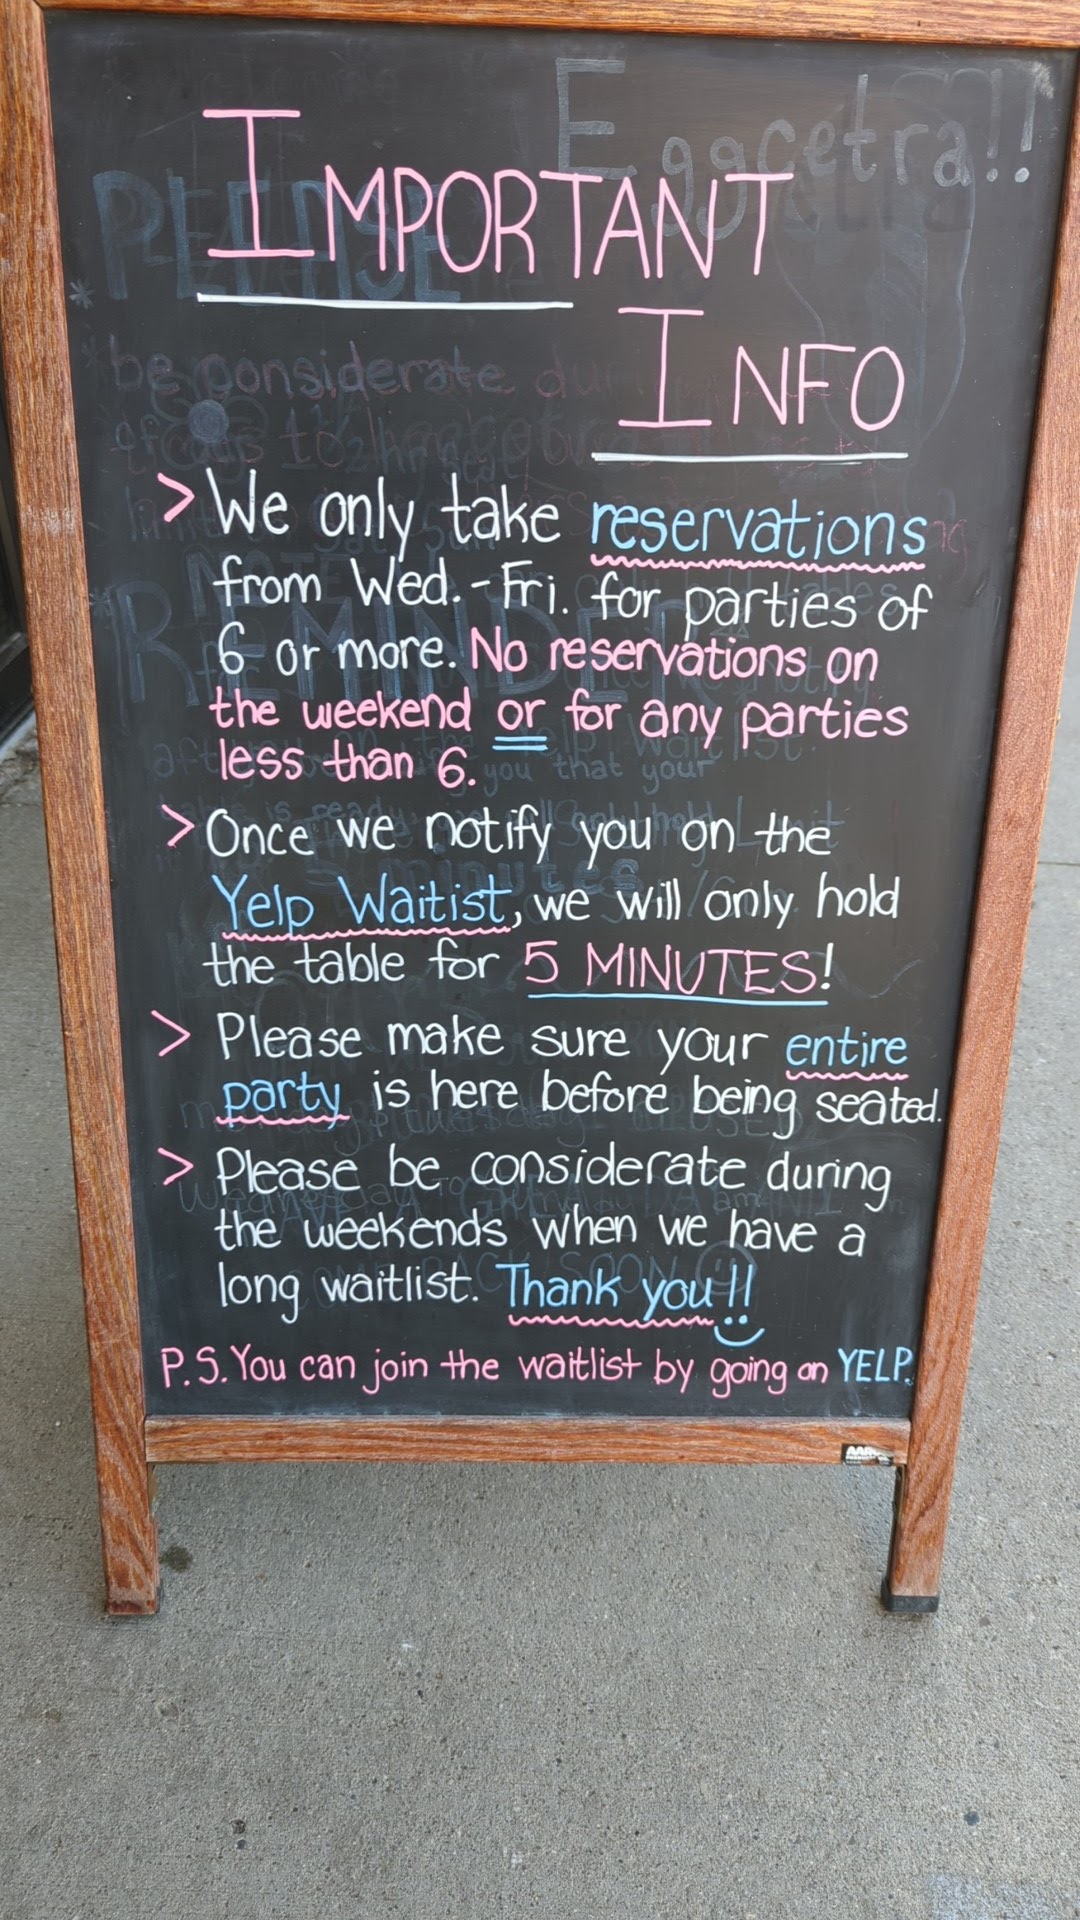 Eggcetra!!
IMPORTANT
INFO
> We only take reservations
from Wed. - Fri. for parties of
6 or more. No reservations on
the weekend or for any parties
less than 6.
> Once we notify you on the
Yelp Waitist, we will only hold
the table for 5 MINUTES!
> Please make sure your entire
party is here before being seated.
> Please be considerate during
the weekends when we have a
long waitlist. Thank you!!
P.S. You can join the waitlist by going on YELP.